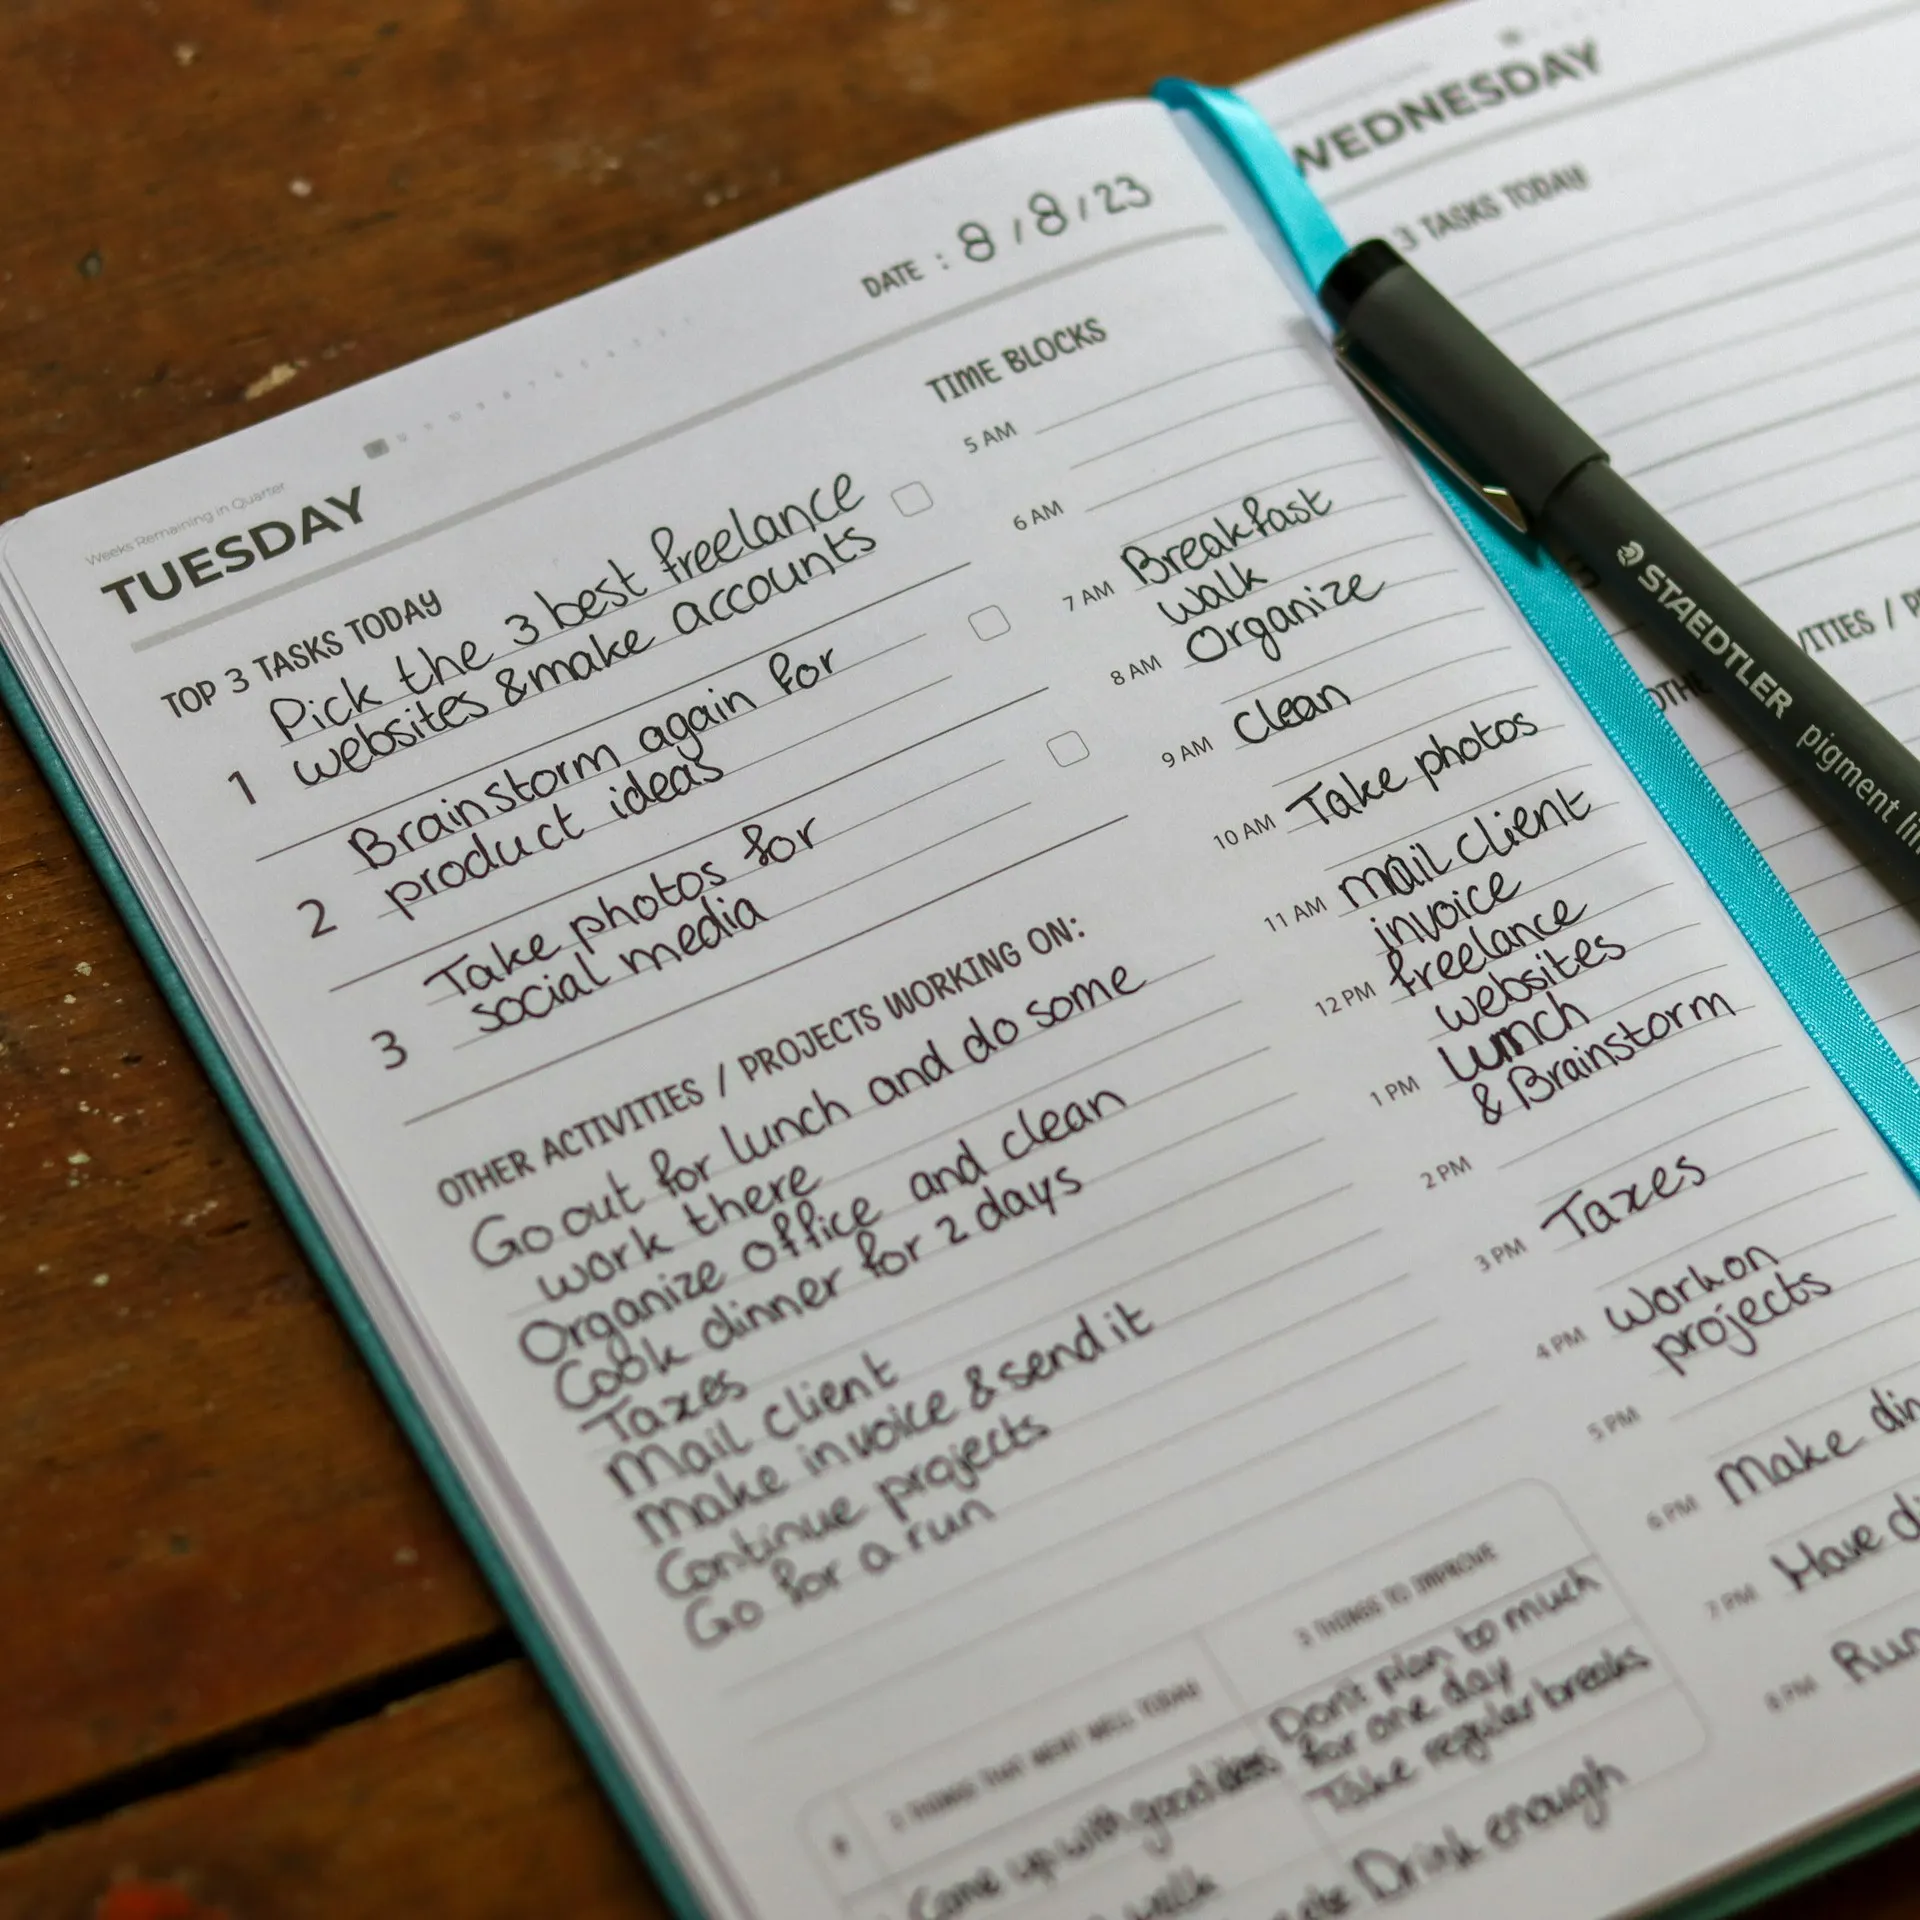 Weeks Remaining in Quarter
TUESDAY
DATE : 8 / 8 / 23
TOP 3 TASKS TODAY
Pick the 3 best freelance
1 websites & make accounts
Brainstorm again for
2 product ideas
Take photos for
3 social media
OTHER ACTIVITIES / PROJECTS WORKING ON:
Go out for lunch and do some
work there
Organize office and clean
Cook dinner for 2 days
Taxes
Mail client
Make invoice & send it
Continue projects
Go for a run
TIME BLOCKS
5 AM
6 AM
7 AM Breakfast
walk
8 AM Organize
9 AM Clean
10 AM Take photos
11 AM mail client
invoice
12 PM freelance
websites
lunch
1 PM & Brainstorm
2 PM
3 PM Taxes
4 PM Work on
projects
5 PM
6 PM Make din
7 PM Have di
8 PM Run
3 THINGS THAT WENT WELL TODAY
Come up with good ideas
walk
3 THINGS TO IMPROVE
Don't plan to much
for one day
Take regular breaks
Drink enough
WEDNESDAY
3 TASKS TODAY
OTHE
VITIES / P
STAEDTLER pigment lin